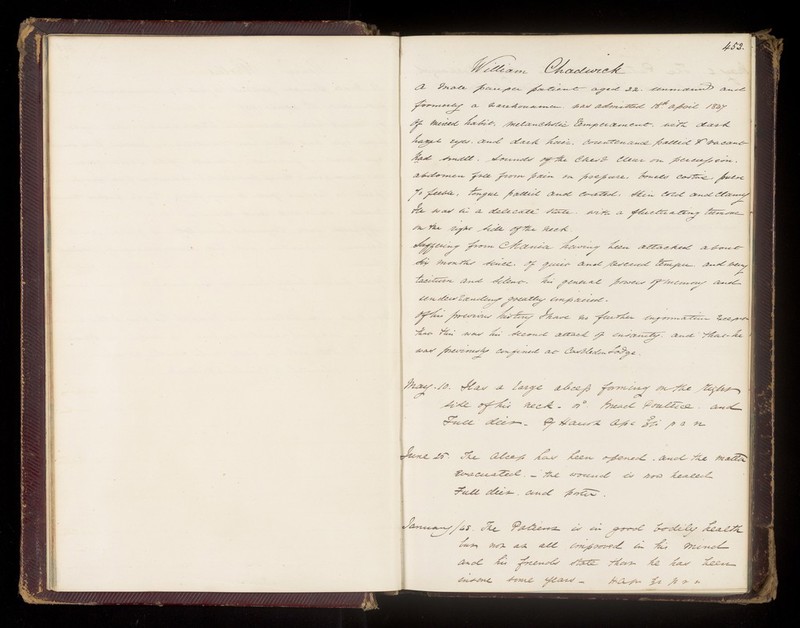 453.
William Chadwick
A male pauper patient aged 32 unmarried and
formerly a warehouseman was admitted 18th April 1847
Of mixed habit, melancholic temperament, with dark
hazel eyes, and dark hair, countenance pallid & vacant
Head small. Sounds of the Chest clear on percussion.
abdomen free from pain on pressure. bowels costive, pulse
70 feeble, tongue pallid and coated. Skin cold and clammy
He was in a delicate state with a fluctuating tumour
on the right side of the neck.
Suffering from Mania having been attacked about
six months since. Of quiet and reserved temper and very
taciturn and silent. his general powers of memory and
understanding greatly impaired.
Of his previous history I have no further information except
that this was his second attack of insanity. and that he
was previously confined at Castleton Lodge.
May. 10. Has a large abcess forming on the right
side of his neck. Bread Poultice. and
Full diet.
June 25. The abcess has been opened. and the matter
evacuated. - the wound is now healed
Full diet and porter.
January /48 The Patient is in good bodily health
but not at all improved in his mind
and his friends state that he has been
insane some years -